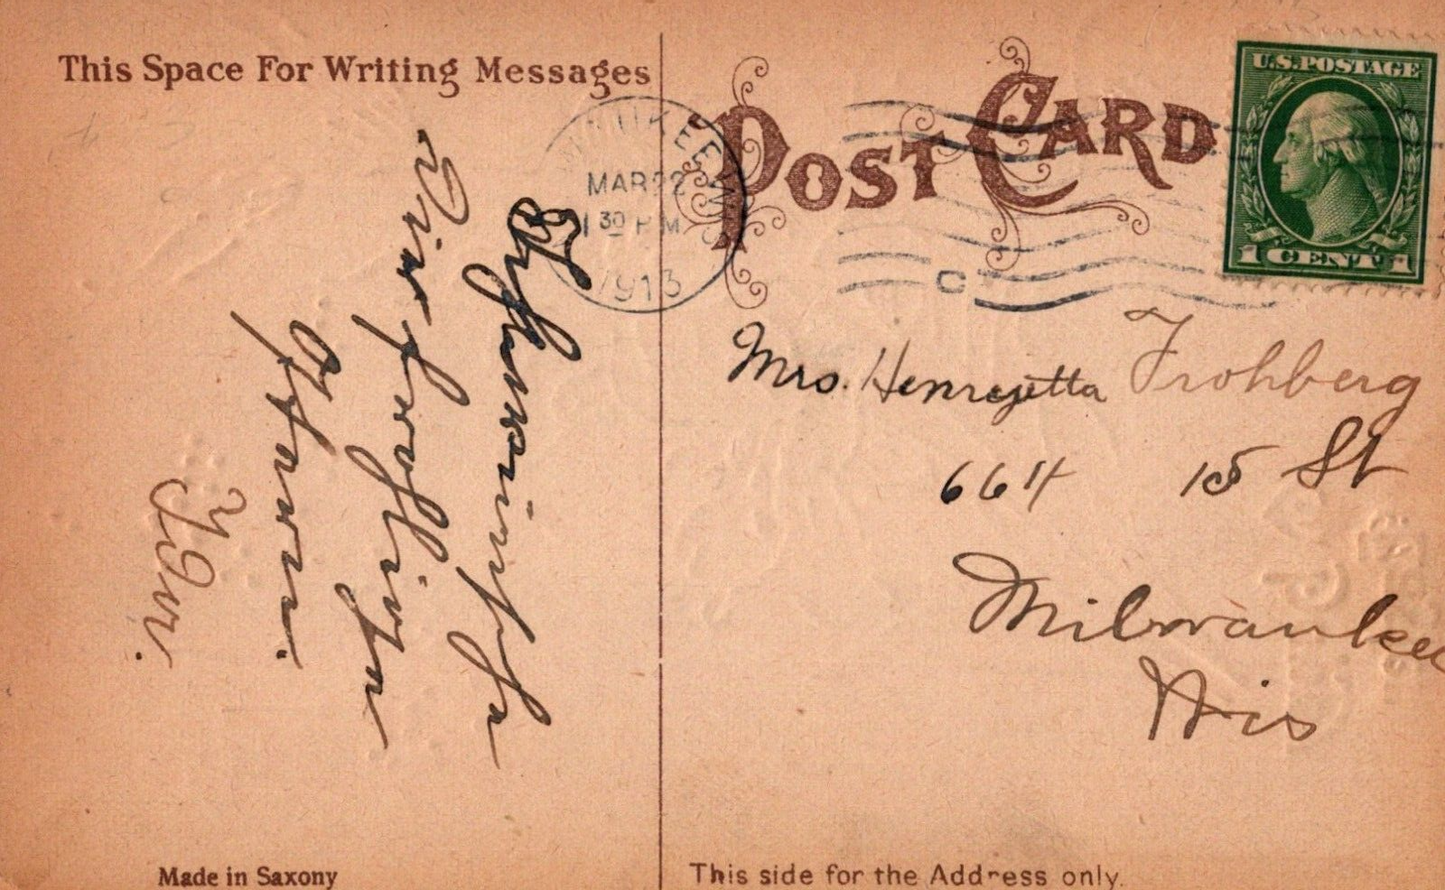 This Space For Writing Messages
POST CARD
U.S. POSTAGE
1 CENT 1
MILWAUKEE, WIS
MAR 22
1 30 P M
1913
C
Dir
Ostern.
Mrs. Henrietta Frohberg
664 15 St
Milwaukee
Wis
Made in Saxony
This side for the Address only.